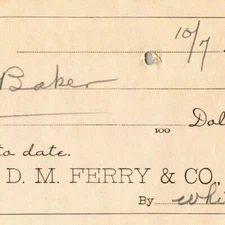 10/7
Baker
100 Dol
to date.
D. M. FERRY & CO.,
By whi